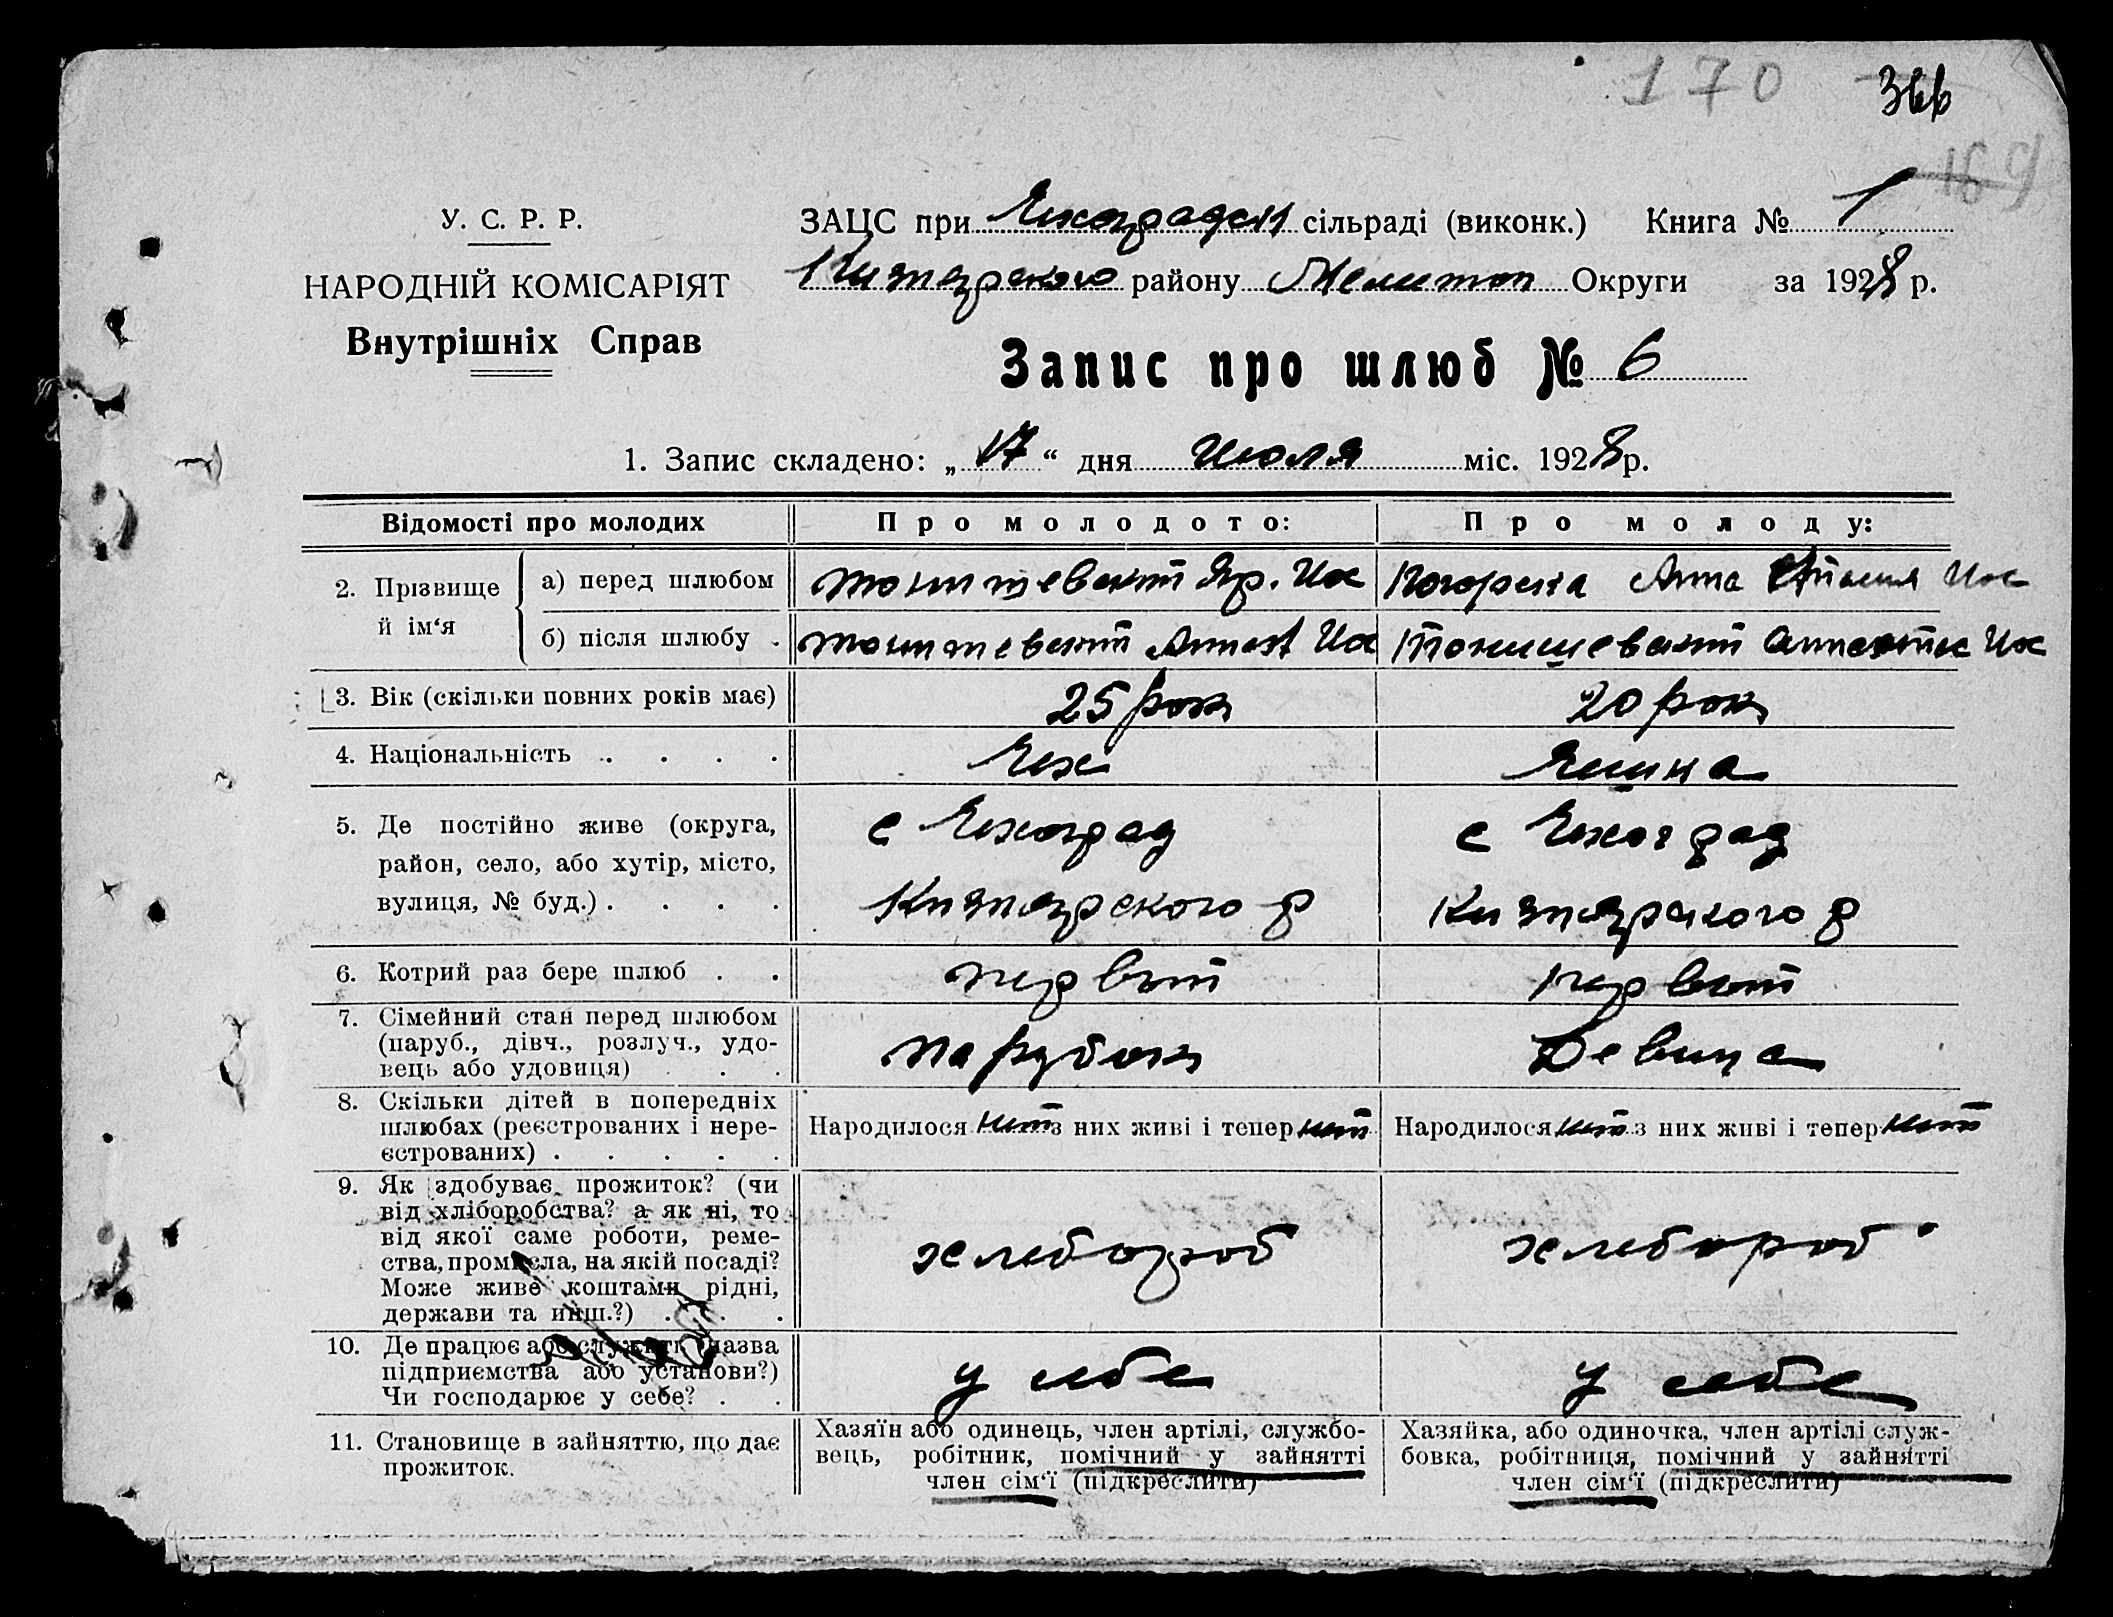 170 366
169
У. С. Р. Р.
НАРОДНІЙ КОМІСАРІЯТ
Внутрішніх Справ
ЗАЦС при Чехоградск сільраді (виконк.) Книга № 1
Кизиярского району Мелитоп Округи за 1928 р.
Запис про шлюб № 6
1. Запис складено: „17“ дня Июля міс. 1928 р.
Відомості про молодих Про молодого: Про молоду:
2. Прізвище й ім‘я
а) перед шлюбом
б) після шлюбу .
3. Вік (скільки повних років має) 25 рок 20 рок
4. Національність . . . . Чех Чешка
5. Де постійно живе (округа, с Чехоград с Чехоград
район, село, або хутір, місто,
вулиця, № буд.) . . . . Кизиярского р Кизиярского р
6. Котрий раз бере шлюб . . первый первый
7. Сімейний стан перед шлюбом
(паруб., дівч., розлуч., удо- парубок Девица
вець або удовиця) . . .
8. Скільки дітей в попередніх
шлюбах (реєстрованих і нере- Народилося нит з них живі і тепер нит Народилося нит з них живі і тепер нит
єстрованих) . . . . .
9. Як здобуває прожиток? (чи
від хліборобства? а як ні, то
від якої саме роботи, реме- хлебороб хлебороб
ства, промисла, на якій посаді?
Може живе коштами рідні,
держави та инш.?) . . .
10. Де працює або служить (назва
підприємства або установи?) у себе у себе
Чи господарює у себе? . .
11. Становище в зайняттю, що дає
прожиток.
Хазяїн або одинець, член артілі, службо-
вець, робітник, помічний у зайнятті
член сім‘ї (підкреслити)
Хазяйка, або одиночка, член артілі служ-
бовка, робітниця, помічний у зайнятті
член сім‘ї (підкреслити)